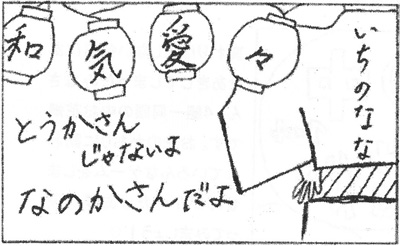 和気愛々
いちのなな
とうかさん
じゃないよ
なのかさんだよ